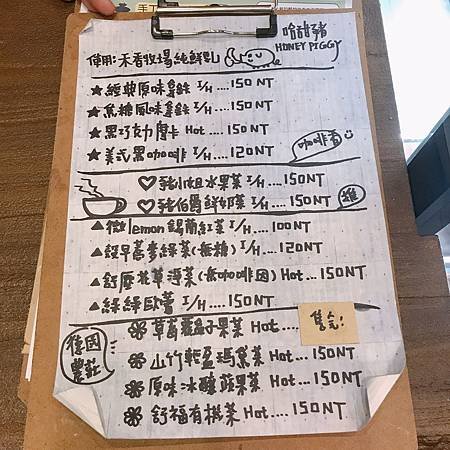 哈甜豬
HONEY PIGGY
使用:禾香牧場純鮮乳
★經典原味拿鐵 I/H....150NT
★焦糖風味拿鐵 I/H....150NT
★黑巧克力摩卡 Hot....150NT
★美式黑咖啡 I/H....120NT
咖啡香
♡豬小姐水果茶 I/H....150NT
♡豬伯爵鮮奶茶 I/H....150NT
▲微lemon錫蘭紅茶 I/H....100NT
▲蕎麥綠茶(無糖) I/H....120NT
▲舒壓花草淨茶(無咖啡因) Hot...150NT
▲綠綠歐蕾 I/H....150NT
德國農莊
草莓覆盆子果茶 Hot....
售完!
山竹輕盈瑪黛茶 Hot....150NT
原味冰釀蔬果茶 Hot....150NT
舒福有機茶 Hot....150NT